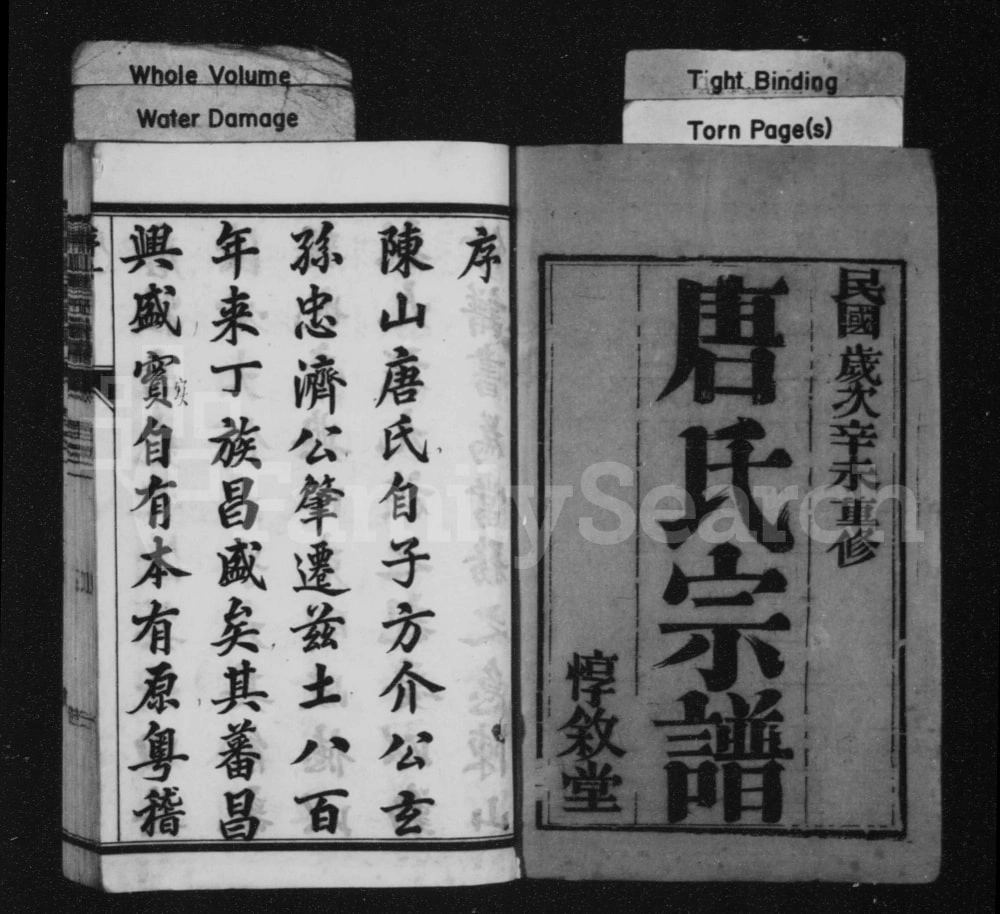 Whole Volume
Water Damage
Tight Binding
Torn Page(s)
民國歲次辛未重修
唐氏宗譜
惇敘堂
序
陳山唐氏自子方介公玄
孫忠濟公肇遷茲土八百
年来丁族昌盛矣其蕃昌
興盛實自有本有原粵稽
实
FamilySearch